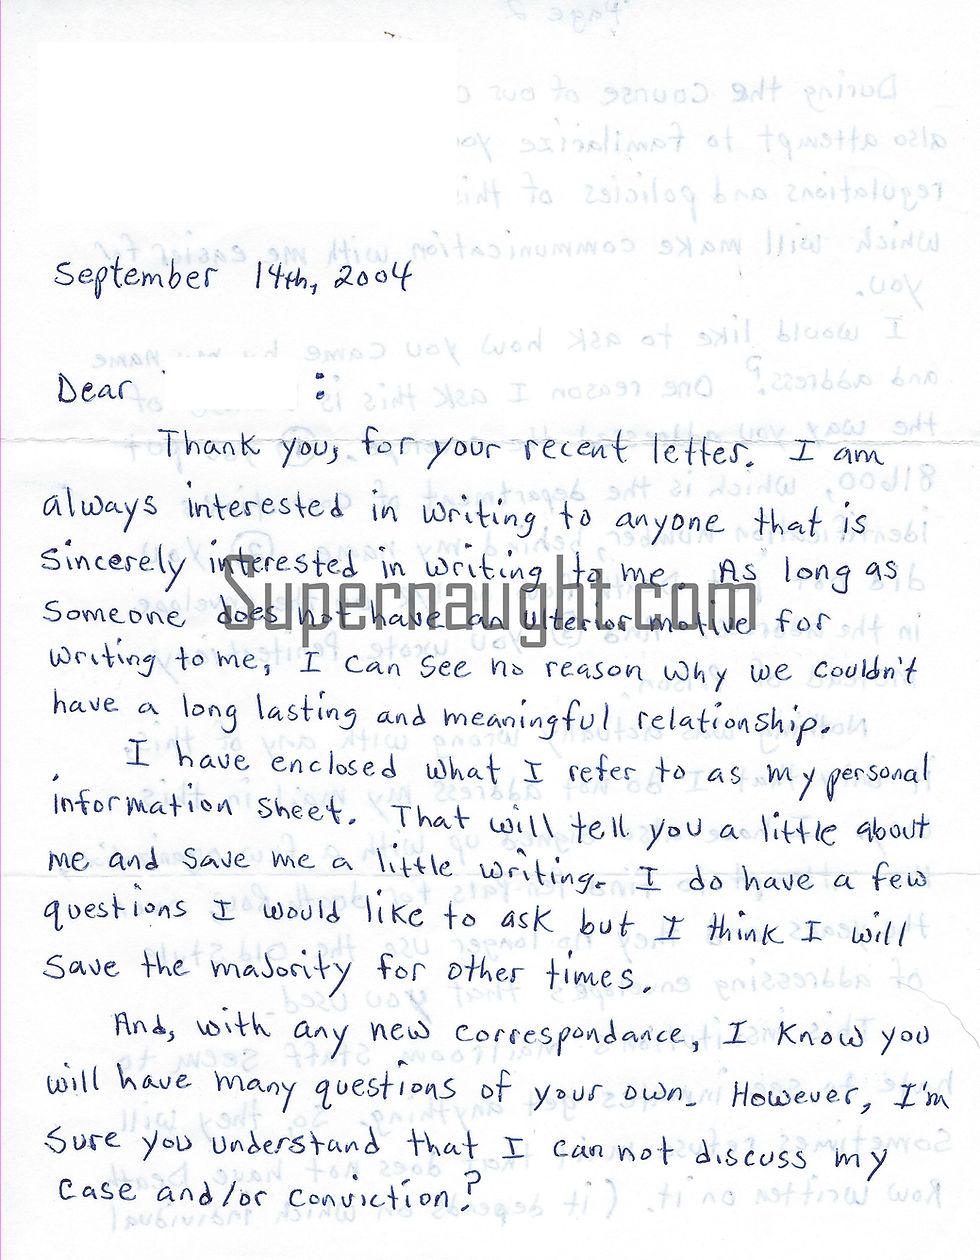 September 14th, 2004
Dear :
Thank you, for your recent letter. I am
always interested in writing to anyone that is
sincerely interested in writing to me. As long as
Supernaught.com
someone does not have an ulterior motive for
writing to me, I can see no reason why we couldn't
have a long lasting and meaningful relationship.
I have enclosed what I refer to as my personal
information sheet. That will tell you a little about
me and save me a little writing. I do have a few
questions I would like to ask but I think I will
save the majority for other times.
And, with any new correspondance, I know you
will have many questions of your own. However, I'm
sure you understand that I can not discuss my
case and/or conviction?